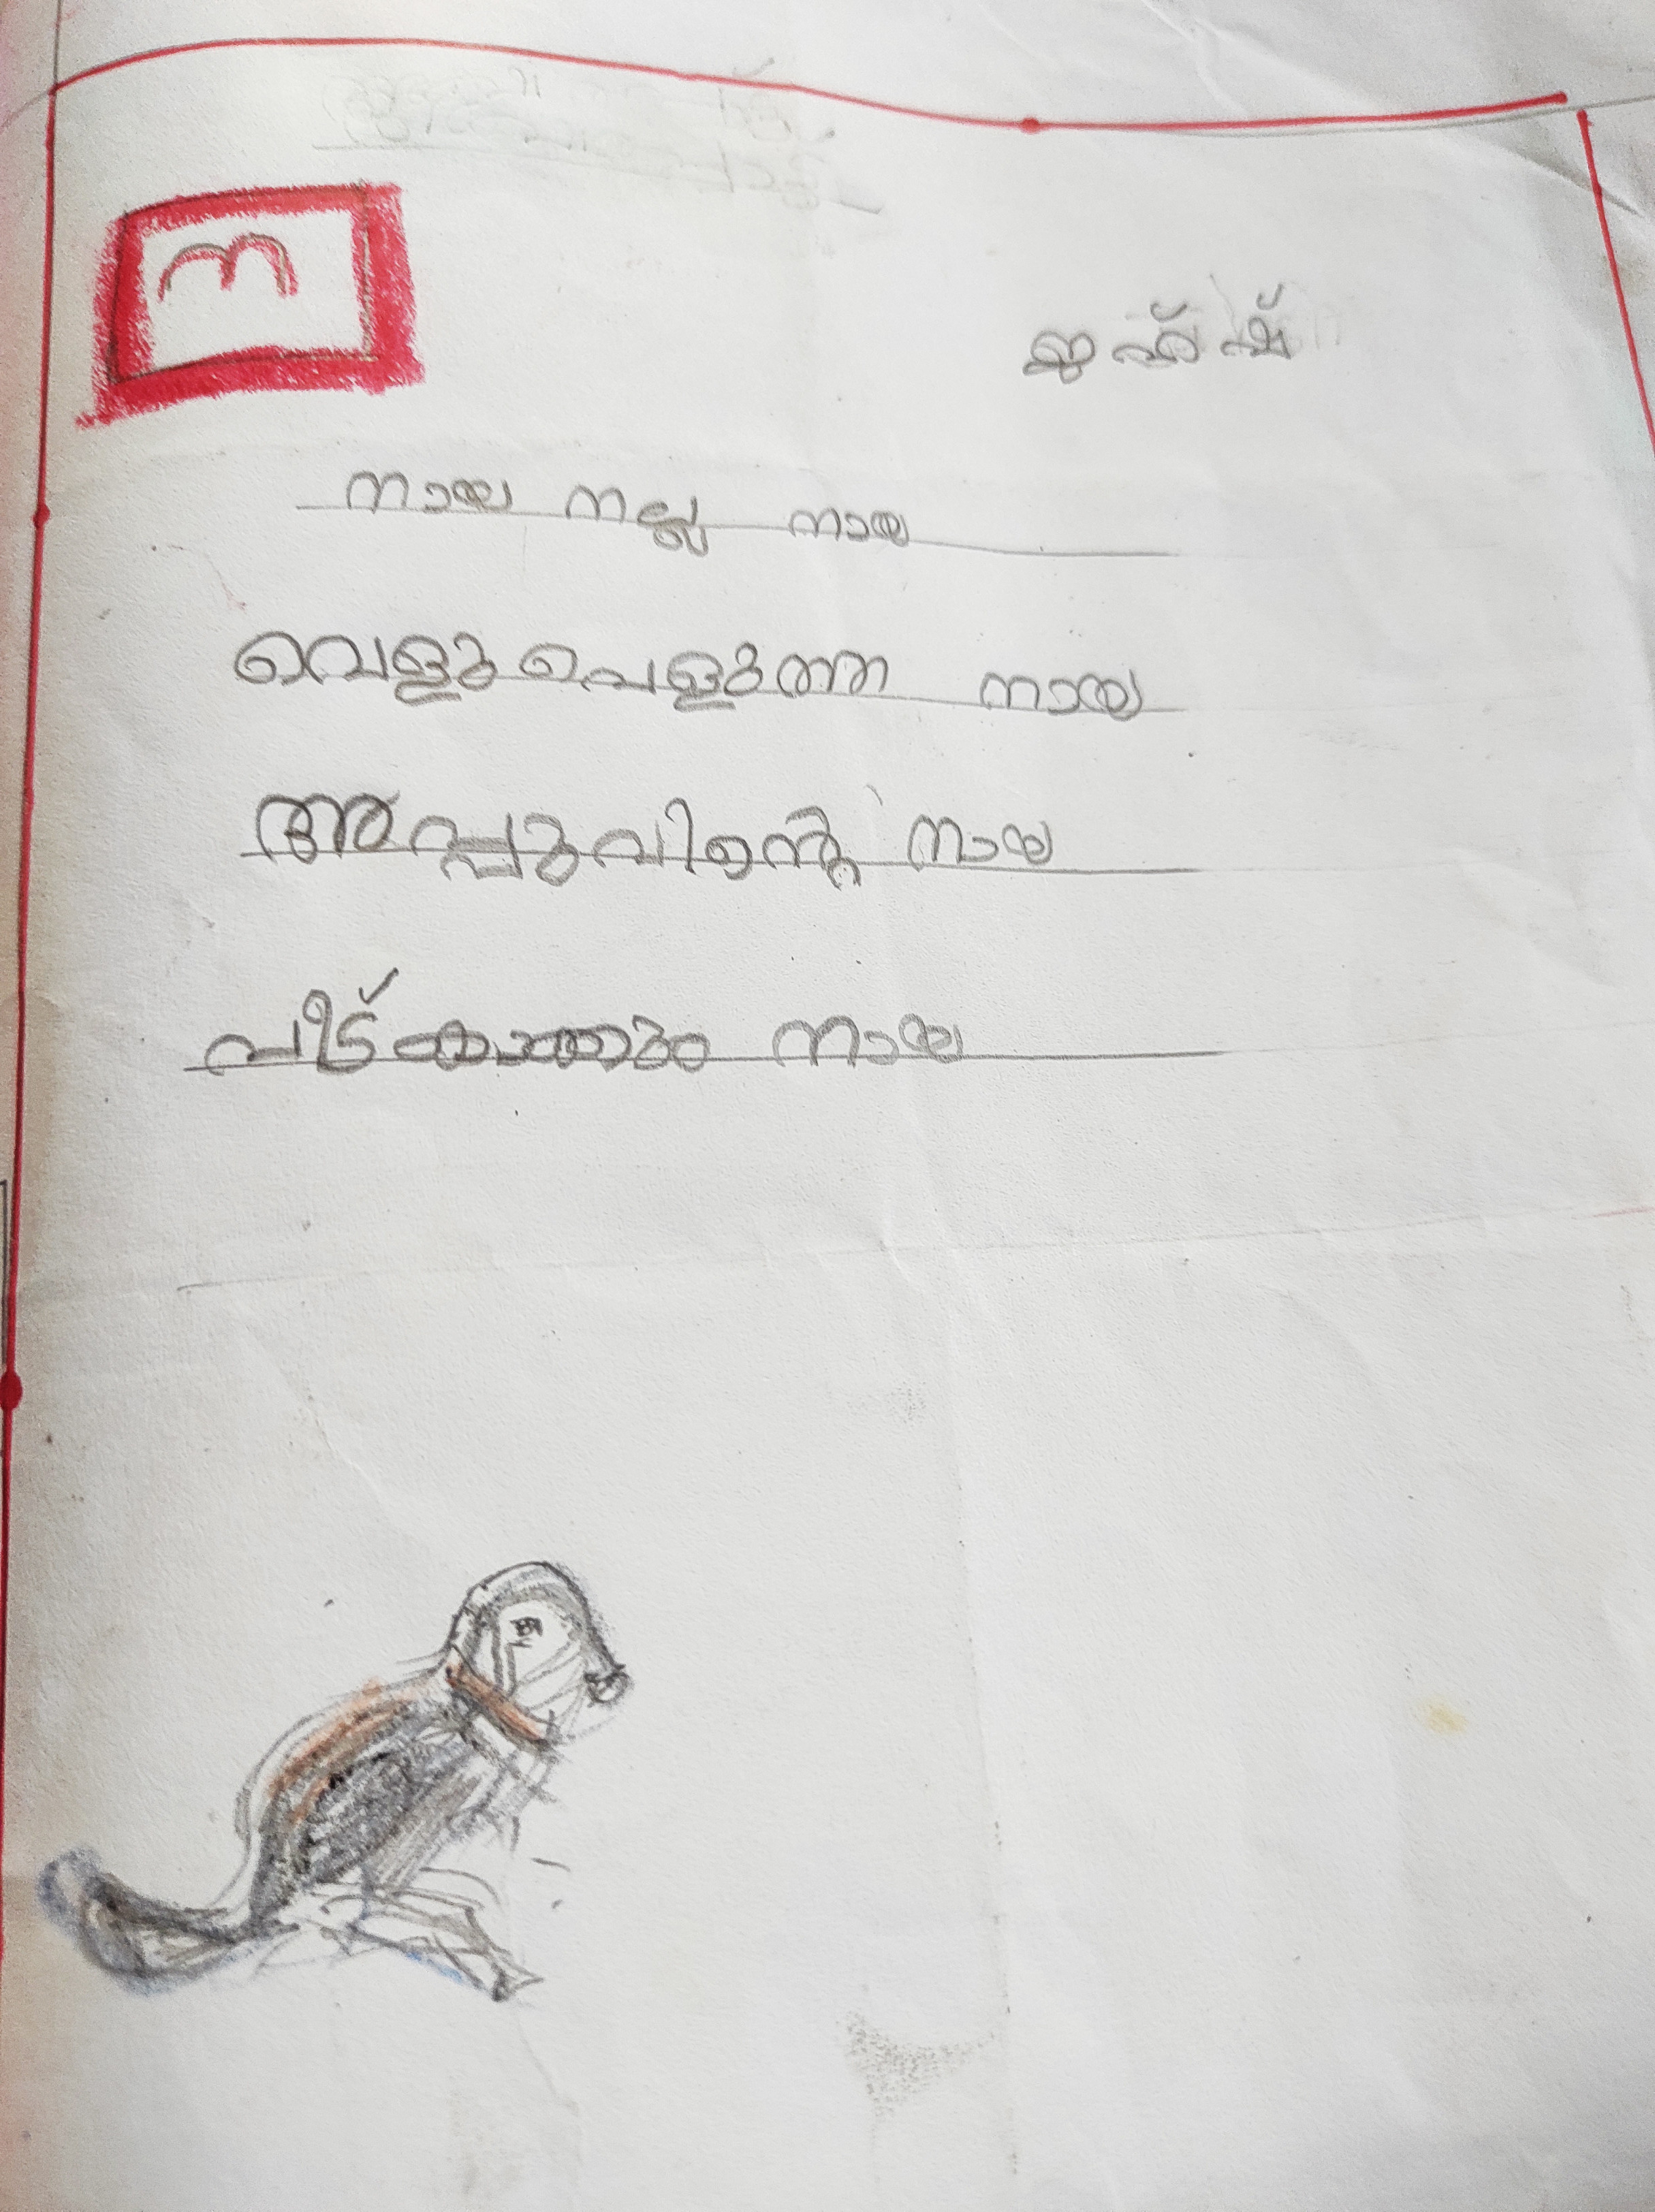 ന
നായ നല്ല നായ
വെളുപെളുത്ത നായ
അപ്പുവിന്റെ നായ
പീട് കാക്കും നായ